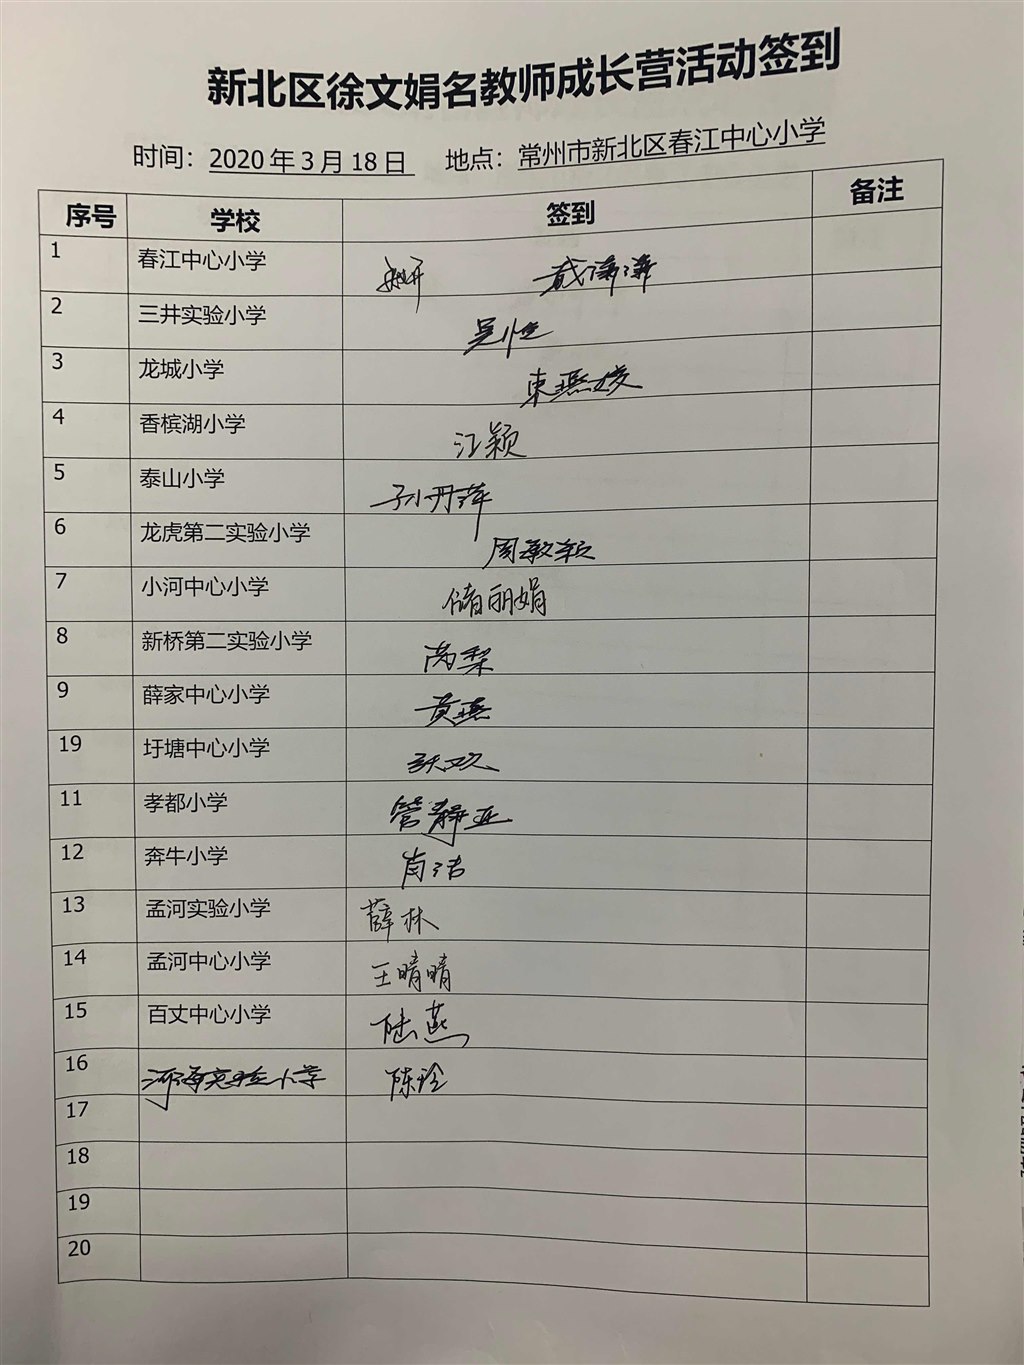 新北区徐文娟名教师成长营活动签到
时间：2020 年 3 月 18 日 地点：常州市新北区春江中心小学
序号 学校 签到 备注
1 春江中心小学 戴潇潇
2 三井实验小学 吴恒
3 龙城小学 束燕媛
4 香槟湖小学 江颖
5 泰山小学 孙丹萍
6 龙虎第二实验小学 周敏颖
7 小河中心小学 储丽娟
8 新桥第二实验小学 芮梨
9 薛家中心小学 黄燕
19 圩塘中心小学 张欢
11 孝都小学 管静亚
12 奔牛小学 肖洁
13 孟河实验小学 薛林
14 孟河中心小学 王晴晴
15 百丈中心小学 陆燕
16 河海实验小学 陈玲
17
18
19
20